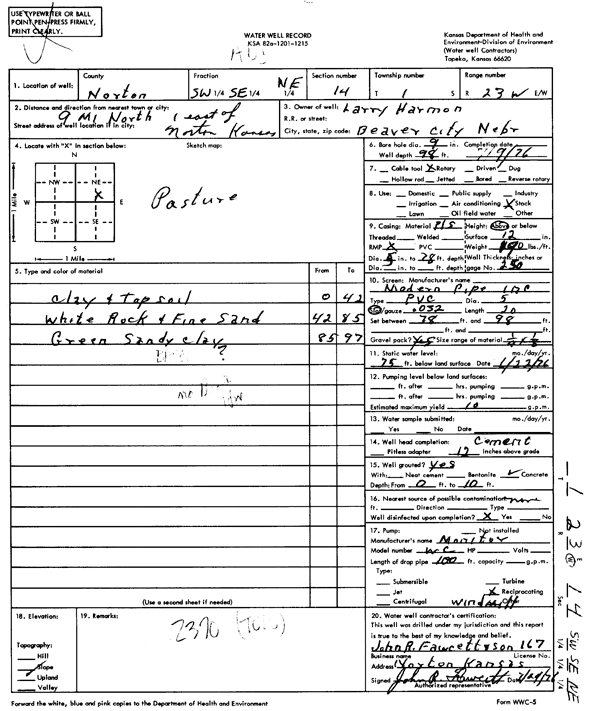 USE TYPEWRITER OR BALL
POINT PEN-PRESS FIRMLY,
PRINT CLEARLY.
WATER WELL RECORD
KSA 82a-1201-1215
Kansas Department of Health and
Environment-Division of Environment
(Water well Contractors)
Topeka, Kansas 66620
1. Location of well:
County
Norton
Fraction
SW 1/4 SE 1/4 NE 1/4
Section number
14
Township number
T 1 S
Range number
R 23 W E/W
2. Distance and direction from nearest town or city:
9 Mi North 1 east of
Street address of well location if in city:
Norton Kansas
3. Owner of well: Larry Harmon
R.R. or street:
City, state, zip code: Beaver City Nebr
4. Locate with "X" in section below:
Sketch map:
N
NW NE
X
W E
SW SE
S
1 Mile
1 Mile
Pasture
5. Type and color of material
From To
Clay & Top soil 0 42
White Rock & Fine Sand 42 85
Green Sandy clay 85 97
?
(Use a second sheet if needed)
6. Bore hole dia. 9 in. Completion date
Well depth 98 ft.
7. Cable tool X Rotary Driven Dug
Hollow rod Jetted Bored Reverse rotary
8. Use: Domestic Public supply Industry
Irrigation Air conditioning X Stock
Lawn Oil field water Other
9. Casing: Material Height: Above or below
Threaded Welded Surface 12 in.
RMP X PVC Weight lbs./ft.
Dia. 5 in. to 78 ft. depth Wall Thickness: inches or
Dia. in. to ft. depth gage No. .250
10. Screen: Manufacturer's name
Modern Pipe INC
Type PVC Dia. 5
Slot/gauze .032 Length 20
Set between 78 ft. and 98 ft.
ft. and ft.
Gravel pack? Yes Size range of material
11. Static water level: mo./day/yr.
75 ft. below land surface Date 1/22/76
12. Pumping level below land surfaces:
ft. after hrs. pumping g.p.m.
ft. after hrs. pumping g.p.m.
Estimated maximum yield 10 g.p.m.
13. Water sample submitted: mo./day/yr.
Yes No Date
14. Well head completion: Cement
Pitless adapter 12 Inches above grade
15. Well grouted? Yes
With: Neat cement Bentonite ✓ Concrete
Depth: From 0 ft. to 10 ft.
16. Nearest source of possible contamination: none
ft. Direction Type
Well disinfected upon completion? X Yes No
17. Pump: Not installed
Manufacturer's name Monitor
Model number WC HP Volts
Length of drop pipe 100 ft. capacity g.p.m.
Type:
Submersible Turbine
Jet X Reciprocating
Centrifugal Windmill Other
18. Elevation:
Topography:
Hill
Slope
Upland
Valley
19. Remarks:
2370 (Topo)
20. Water well contractor's certification:
This well was drilled under my jurisdiction and this report
is true to the best of my knowledge and belief.
John R. Fawcett & son 167
Business name License No.
Address Norton Kansas
Signed John R. Fawcett Date
Authorized representative
Forward the white, blue and pink copies to the Department of Health and Environment
Form WWC-5
T 1 R 23 E W Sec 14 SW 1/4 SE 1/4 NE 1/4